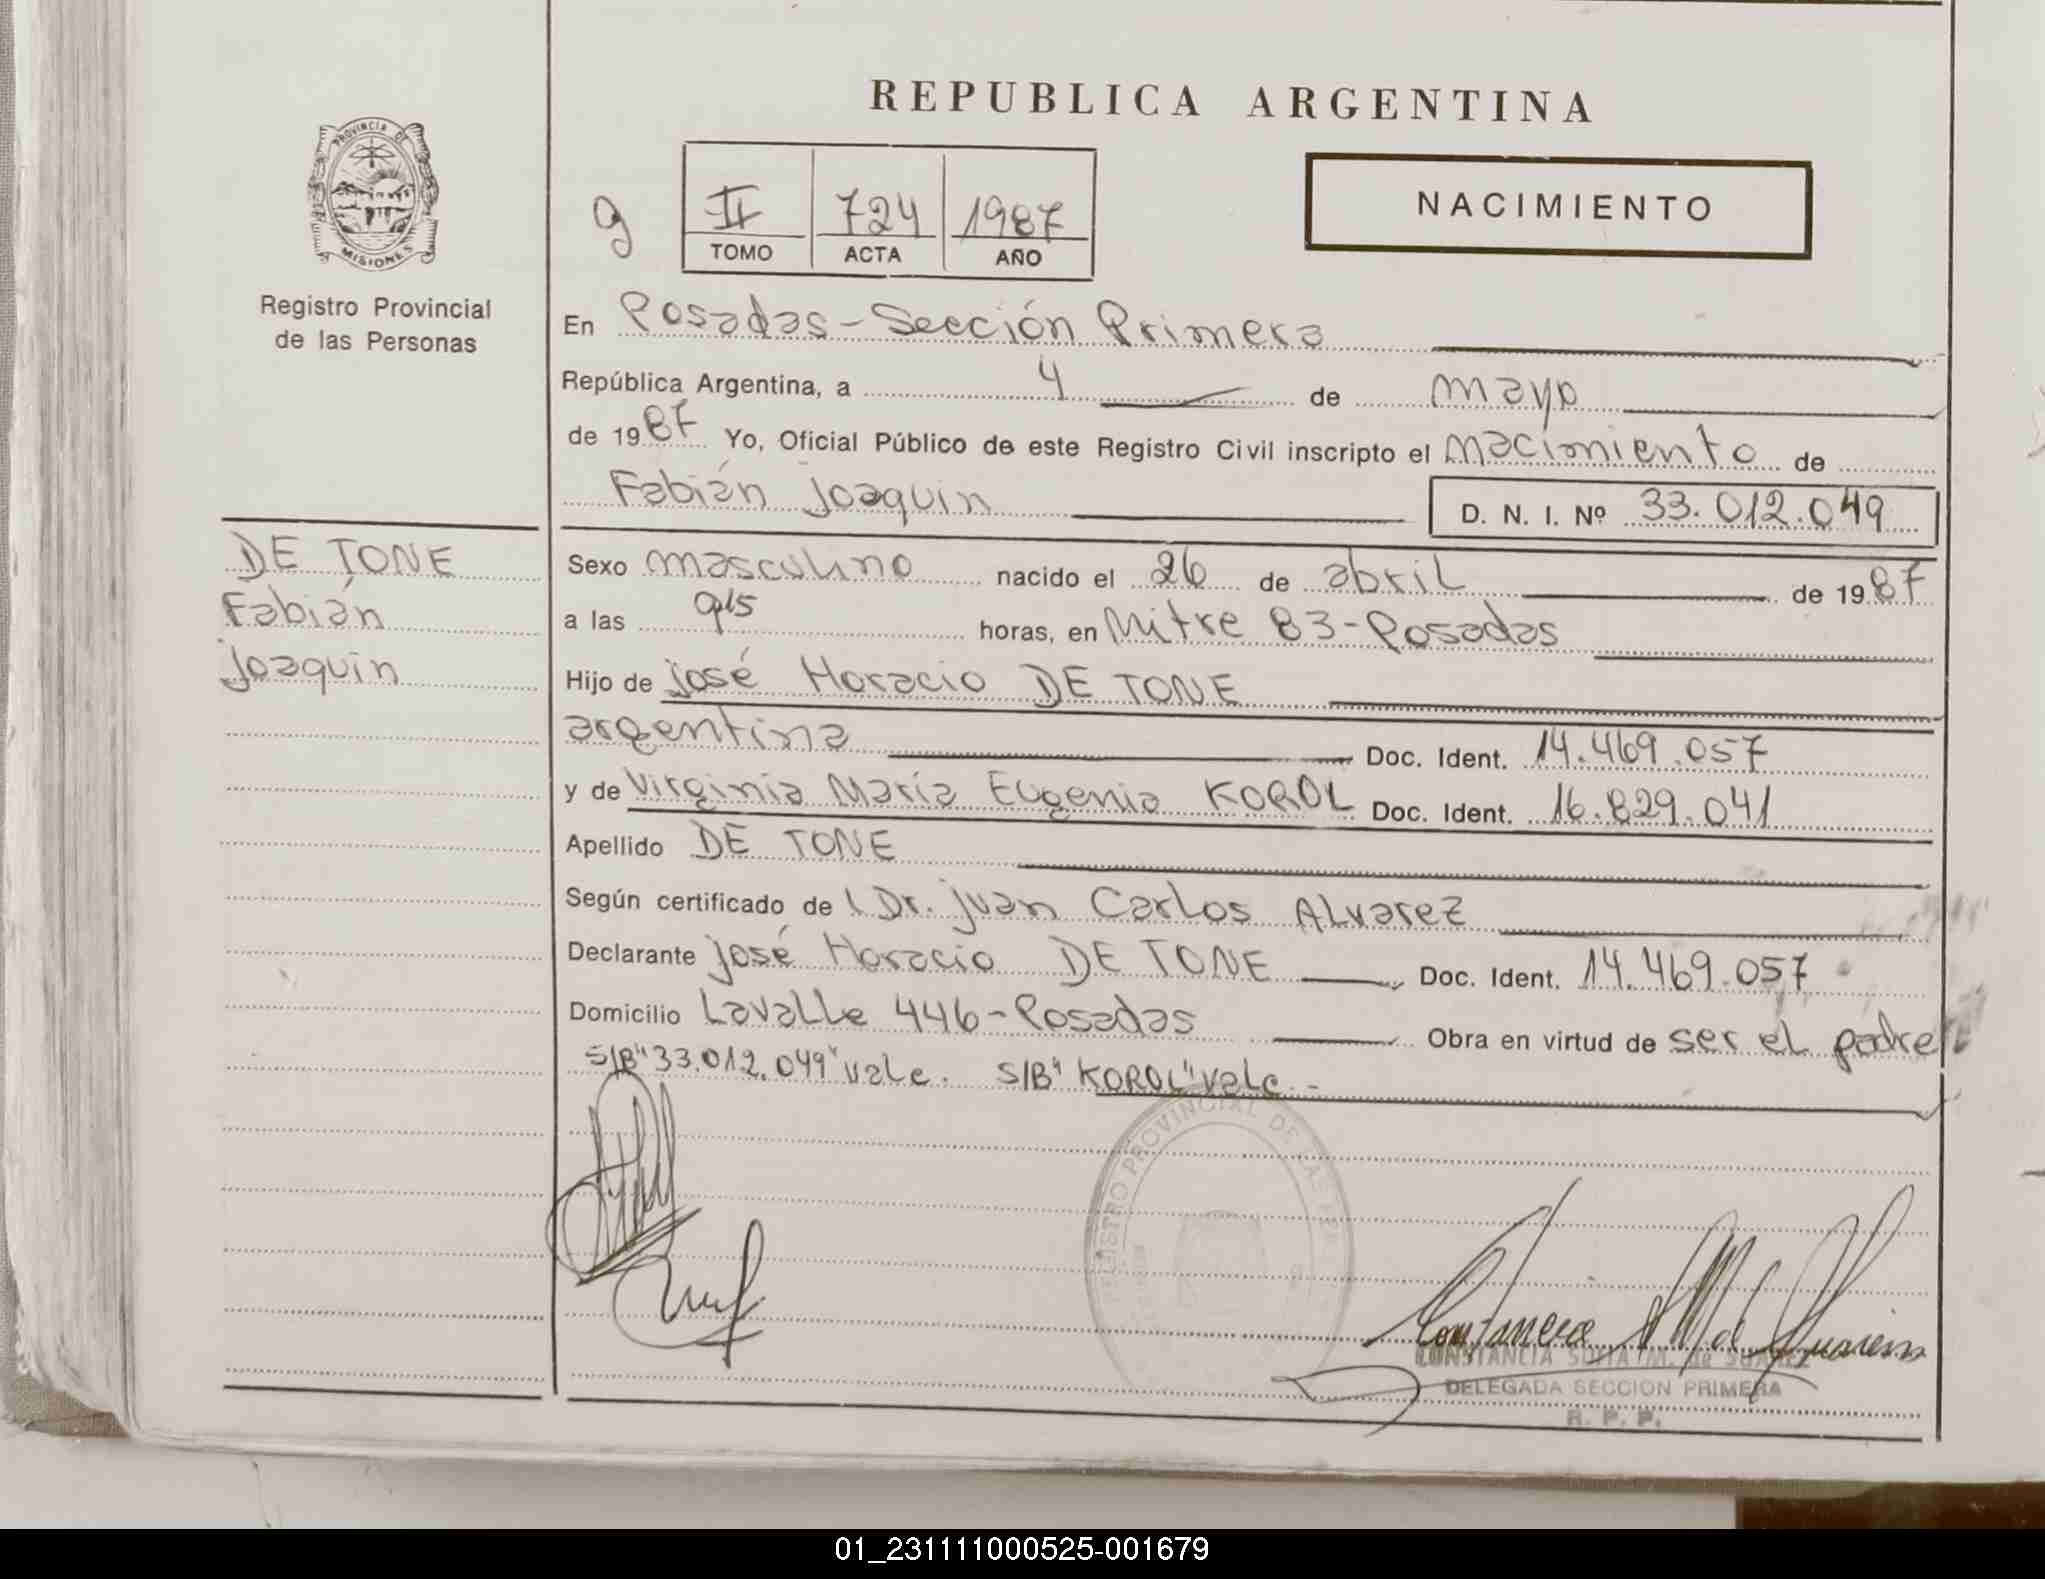 REPUBLICA ARGENTINA
PROVINCIA DE
MISIONES
Registro Provincial
de las Personas
g
II 724 1987
TOMO ACTA AÑO
NACIMIENTO
En Posadas - Sección Primera
República Argentina, a 4 de mayo
de 1987 Yo, Oficial Público de este Registro Civil inscripto el nacimiento de
Fabián Joaquín
D. N. I. Nº 33.012.049
DE TONE
Fabián
Joaquín
Sexo masculino nacido el 26 de abril de 1987
a las 9,15 horas, en Mitre 83 - Posadas
Hijo de José Horacio DE TONE
argentina Doc. Ident. 14.469.057
y de Virginia María Eugenia KOROL Doc. Ident. 16.829.041
Apellido DE TONE
Según certificado de Dr. Juan Carlos Alvarez
Declarante José Horacio DE TONE Doc. Ident. 14.469.057
Domicilio Lavalle 446 - Posadas Obra en virtud de ser el padre
S/B "33.012.049" vale. S/B "KOROL" vale. -
REGISTRO PROVINCIAL DE LAS PER
CONSTANCIA SOFIA M. de SUAREZ
DELEGADA SECCION PRIMERA
R. P. P.
01_231111000525-001679